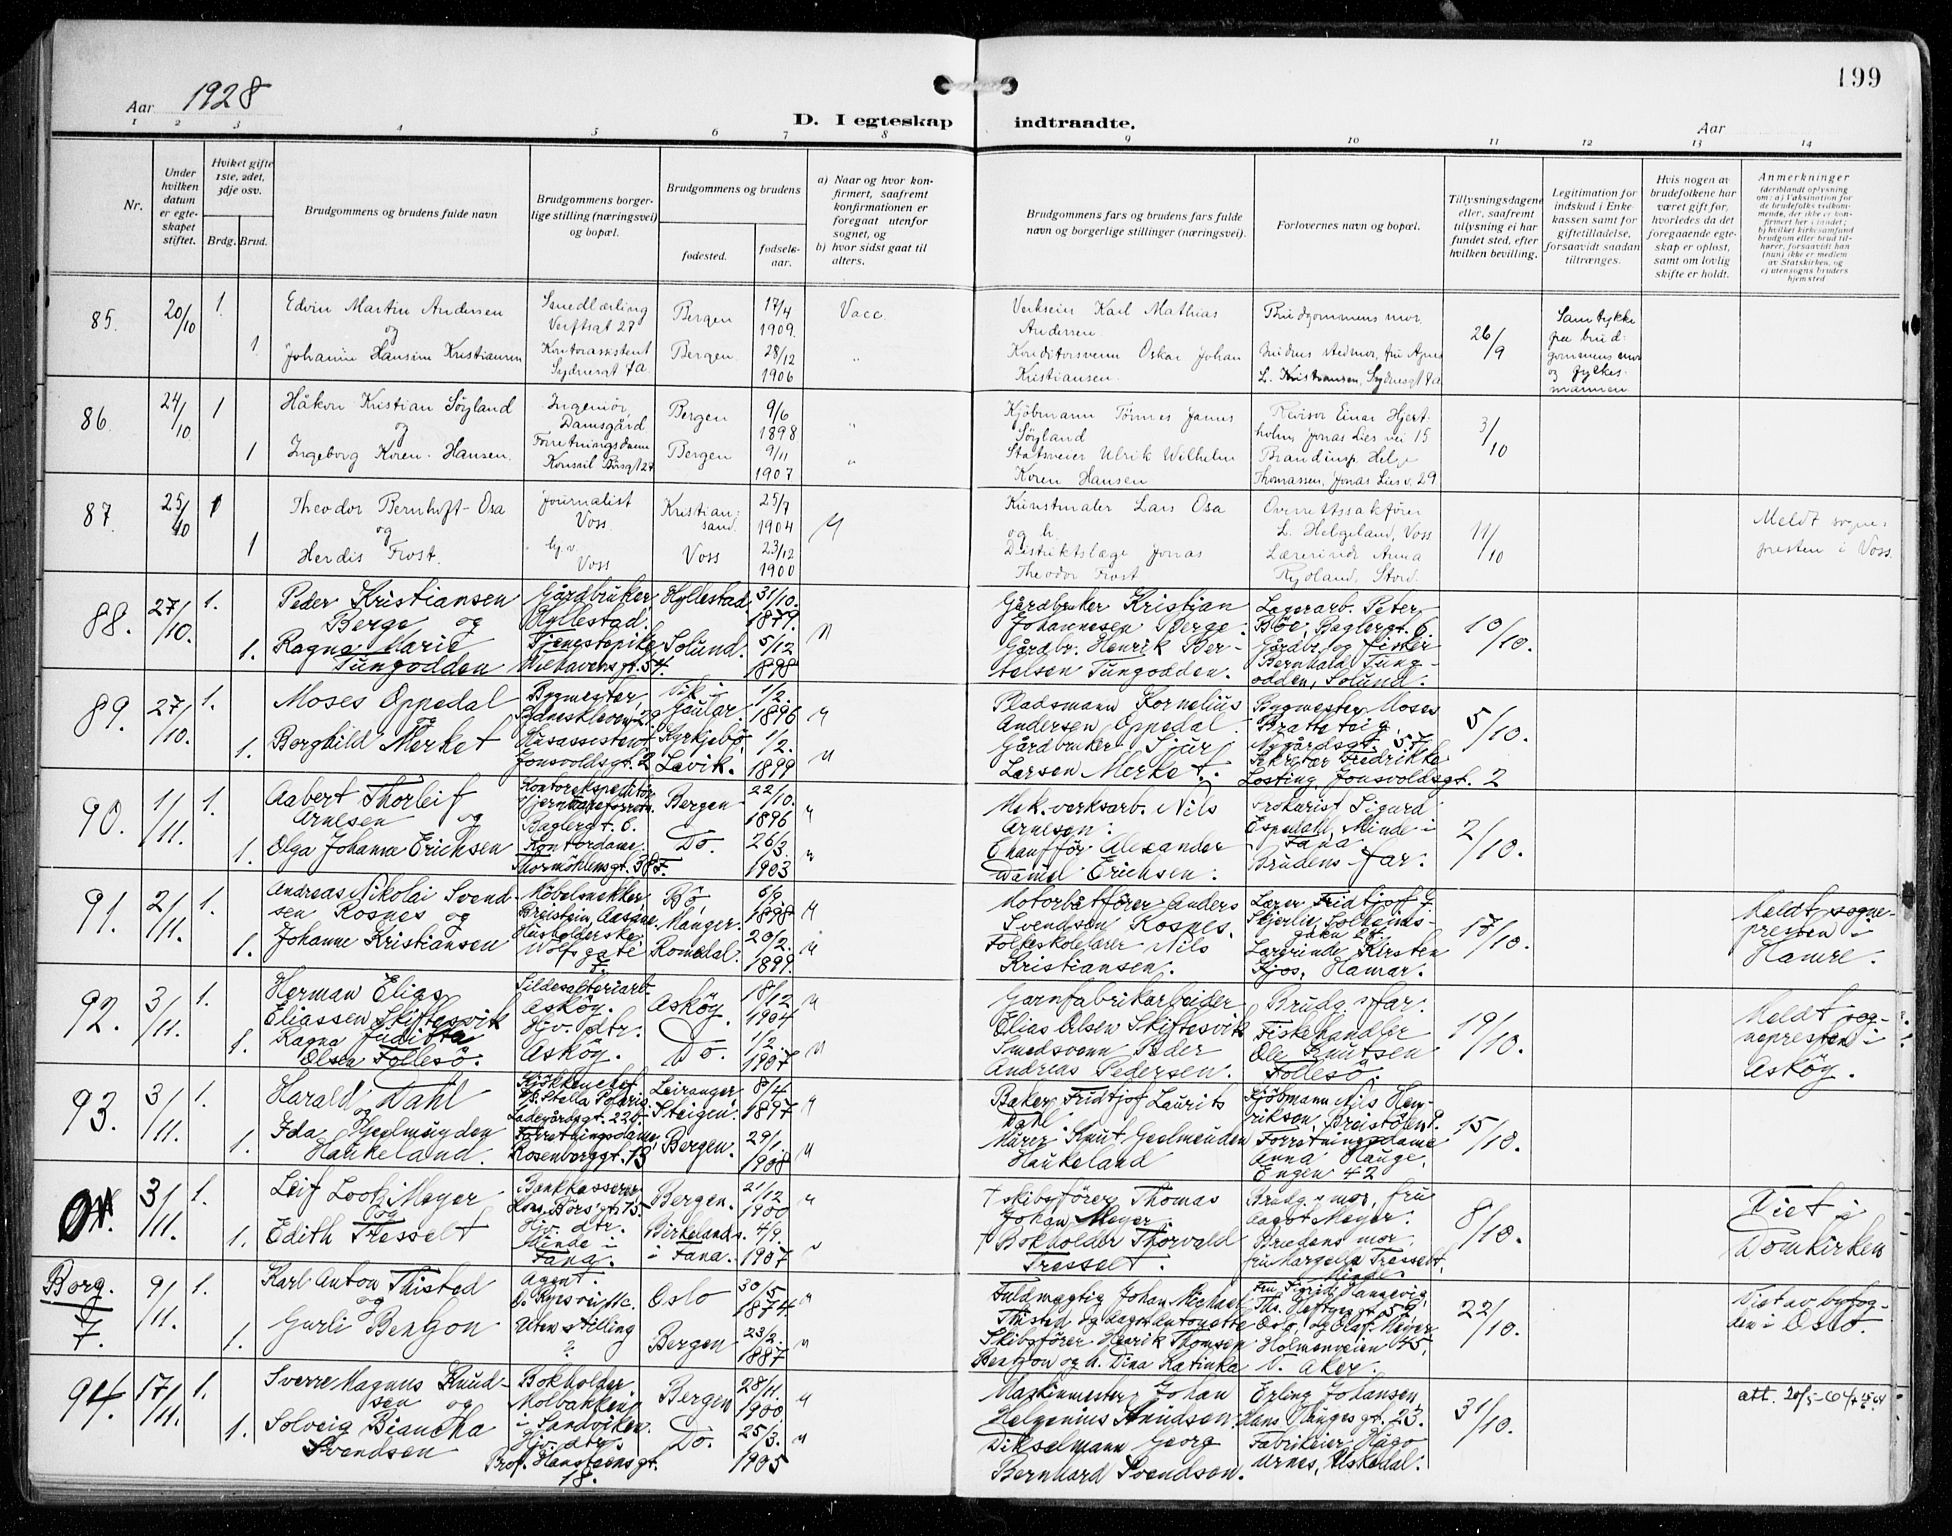 199
Aar 1928
D. I egteskap indtraadte.
Aar
1 2 3 4 5 6 7 8 9 10 11 12 13 14
Nr.
Under hvilken datum er egteskapet stiftet.
Hvilket gifte 1ste, 2det, 3dje osv.
Brdg. Brud.
Brudgommens og brudens fulde navn
Brudgommens borgerlige stilling (næringsvei) og bopæl.
Brudgommens og brudens
fødested.
fødselsaar.
a) Naar og hvor konfirmert, saafremt konfirmationen er foregaat utenfor sognet, og
b) hvor sidst gaat til alters.
Brudgommens fars og brudens fars fulde navn og borgerlige stillinger (næringsvei).
Forlovernes navn og bopæl.
Tillysningsdagene eller, saafremt tillysning ei har fundet sted, efter hvilken bevilling.
Legitimation for indskud i Enkekassen samt for giftetilladelse, forsaavidt saadan tiltrænges.
Hvis nogen av brudefolkene har været gift før, hvorledes da det foregaaende egteskap er opløst, samt om lovlig skifte er holdt.
Anmerkninger
85. 20/10 1. Edvin Martin Andersen Smedlærling Bergen 17/4 Vacc. Verkseier Karl Mathias Brudgommens mor, 26/9 Samtykke
og Verftsgt 27 1909. Andersen. fra brud-
1 Johanne Hansine Kristiansen Kontorassistent Bergen. 28/12 " Konditorsvenn Oskar Johan brudens stedmor, fru Agnes gommens mor
Sydnesgt 7a 1906 Kristiansen. L. Kristiansen, Sydnesgt 7a og fylkes-
mannen
86. 24/10 1 Håkon Kristian Søyland Ingeniør, Bergen 9/6 " Kjøbmann Tørnes Janus Revisor Einar Hjert- 3/10
og Damsgård 1898 Søyland holm, Jonas Lies vei 15
1 Ingeborg Koren-Hansen. Forretningsdame Bergen 9/11 " Ulrik Wilhelm Brandinsp. Helge
Konsul Børsgt 27 1907 Koren Hansen Thomassen, Jonas Lies v. 29
87. 25/10 1 Theodor Bernhoft-Osa Journalist Kristian- 25/7 Kunstmaler Lars Osa Overrettssakfører 11/10 Meldt sogne-
og Voss. sand. 1904 og h. L. Helgeland, Voss presten i Voss.
1 Herdis Frost. hj.v. Voss 23/12 Distriktslæge Jonas Lærerinde Anna
Voss 1900 Theodor Frost Rydland, Stord.
88. 27/10. 1. Peder Kristiansen Gårdbruker Hyllestad 31/10. Gårdbruker Kristian Lagerarb. Peter 10/10.
Berge og Hyllestad. 1879. " Johannesen Berge. Böe, Baglergt. 6.
1. Ragna Marie Tjenestepike Solund. 5/12 Gårdbr. Henrik Ber- Gårdbr. og fisker
Tungodden Welhavensgt. 54. 1898 telsen Tungodden. Bernhard Tung-
odden, Solund.
89. 27/10. 1. Moses Oppedal Bygmester, Vik i 1/2. " Pladsmann Kornelius Bygmester Moses 5/10.
og Sydneskleven 29 Gaular. 1896 Andersen Oppedal. Bratteteig,
1. Borghild Merket Husassistent Kyrkjebö, 1/2. " Gårdbruker Sjur Nygårdsgt. 57.
Jonsvoldsgt. 2 Lavik. 1899 Larsen Merket. Sekretær Fredrikke
Losting Jonsvoldsgt. 2
90. 1/11. 1. Aabert Thorleif Kontorekspeditör Bergen 22/10. " Mek. verksarb. Nils Prokurist Sigurd 2/10.
Arnesen og 1896 Arnesen. Espedahl, Minde i
Baglergt. 6. Fana.
1. Olga Johanne Erichsen Kontordame, Do. 26/3. " Chaufför Alexander Brudens far.
Thormöhlensgt. 38 1903 Daniel Erichsen.
91. 2/11. 1. Andreas Nikolai Svend- Möbelsnekker, Bö, 6/9. " Motorbåtförer Anders Lærer Fridtjof F. 17/10. Meldt sogne-
sen Rosnes og Breistein, Aasane. Manger. 1898 Svendsen Rosnes. Skjerlie, presten i
1. Johanne Kristiansen Husholderske, Romedal. 20/2. " Folkeskolelærer Nils Lærerinde Kirsten Hamre.
Wolfsgate 1899. Kristiansen. Fjos, Hamar.
92. 3/11. 1. Herman Elias Sildesalteriarb. Asköy. 18/12 " Garnfabrikarbeider Brudg.s far. 19/10. Meldt sog-
Eliassen Skiftesvik Asköy. 1904 Elias Olsen Skiftesvik Fiskehandler nepresten i
1. Ragna Juditta Hjv. dtr. Do. 1/2. " Smedsvenn Peder Ole Knutsen Asköy.
Olsen Follesö. Asköy. 1907 Andreas Pedersen. Follesö.
93. 3/11. 1. Harald Dahl Kjökkenchef Leiranger, 8/4 " Baker Fridtjof Laurits Kjöbmann Nils Hen- 15/10.
og Stella Polaris Steigen. 1897 Dahl. riksen, Breistölen
Ladegårdsgt. 22b.
1. Ida Geelmuyden Forretningsdame, Bergen. 29/1. " Murer Knut Geelmeuden Forretningsdame
Haukeland. Rosenborggt. 13 1908 Haukeland Anna Hauge,
Engen 42
3/11. 1. Leif Lootz Meyer Bankkasserer Bergen. 21/12 " † skibsförer Thomas Brudg.s mor, fru 8/10. Viet i
og Kons. Börsgt. 15. 1900 Johan Meyer. Aagot Meyer. Domkirken
1. Edith Tresselt Hjv. dtr. Birkelands. 4/9. † Bokholder Thorvald Brudens mor,
Minde i i Fana. 1907 " Tresselt. fru Margella Tresselt,
Fana. Minde
Borg. 7. 9/11. 1. Karl Anton Thisted Agent. Oslo 30/5 " Fuldmægtig Johan Michael Fru Sigrid Hannevig, 22/10. Viet av byfog-
og 1874 Thisted og Dagny Antonette Ths. Heftyes gt. 52 den i Oslo.
1. Gurli Bentzon Uten stilling Bergen 23/2. " Skibsförer Henrik Thomsen Oslo, og Olaf Meyer
1887 Bentzon og h. Dina Katinka Holmenveien 45,
V. Aker.
94. 17/11. 1. Sverre Magnus Knud- Bokholder, Bergen 28/11. " Maskinmester Johan Erling Johansen, 31/10.
sen og Molbakken, 1900. Helgenius Knudsen. Hans Hauges gt. 23.
1. Solveig Biancka i Sandviken. Do. 25/3. " Dikselmann Georg Fabrikeier Hugo
Svendsen Hjv. dtr. 1905 Bernhard Svendsen. Arnes,
Prof. Hansteensgt.
18.